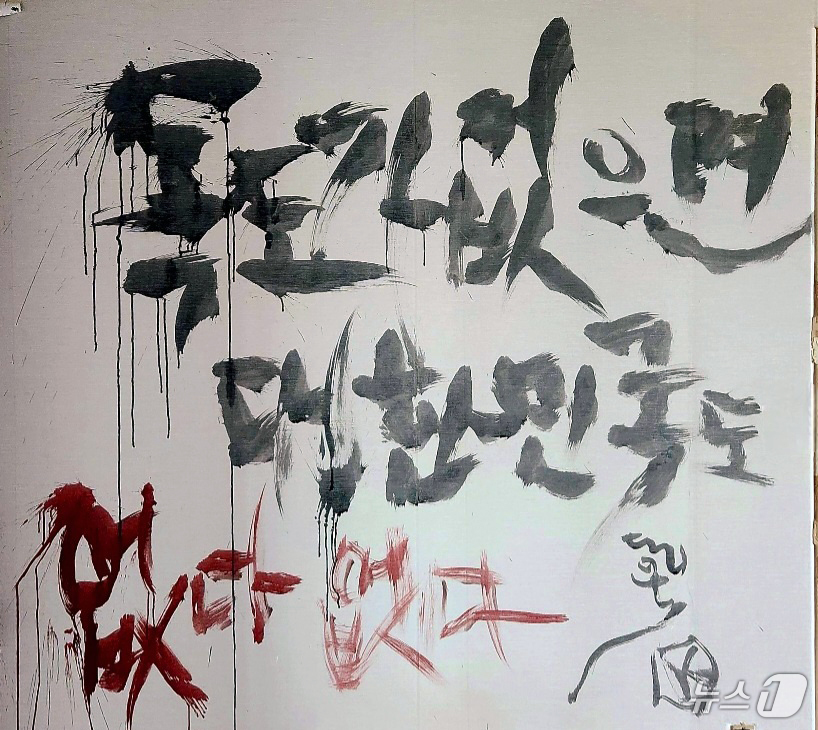 독도가 없으면
대한민국도
없다 없다
뉴스1